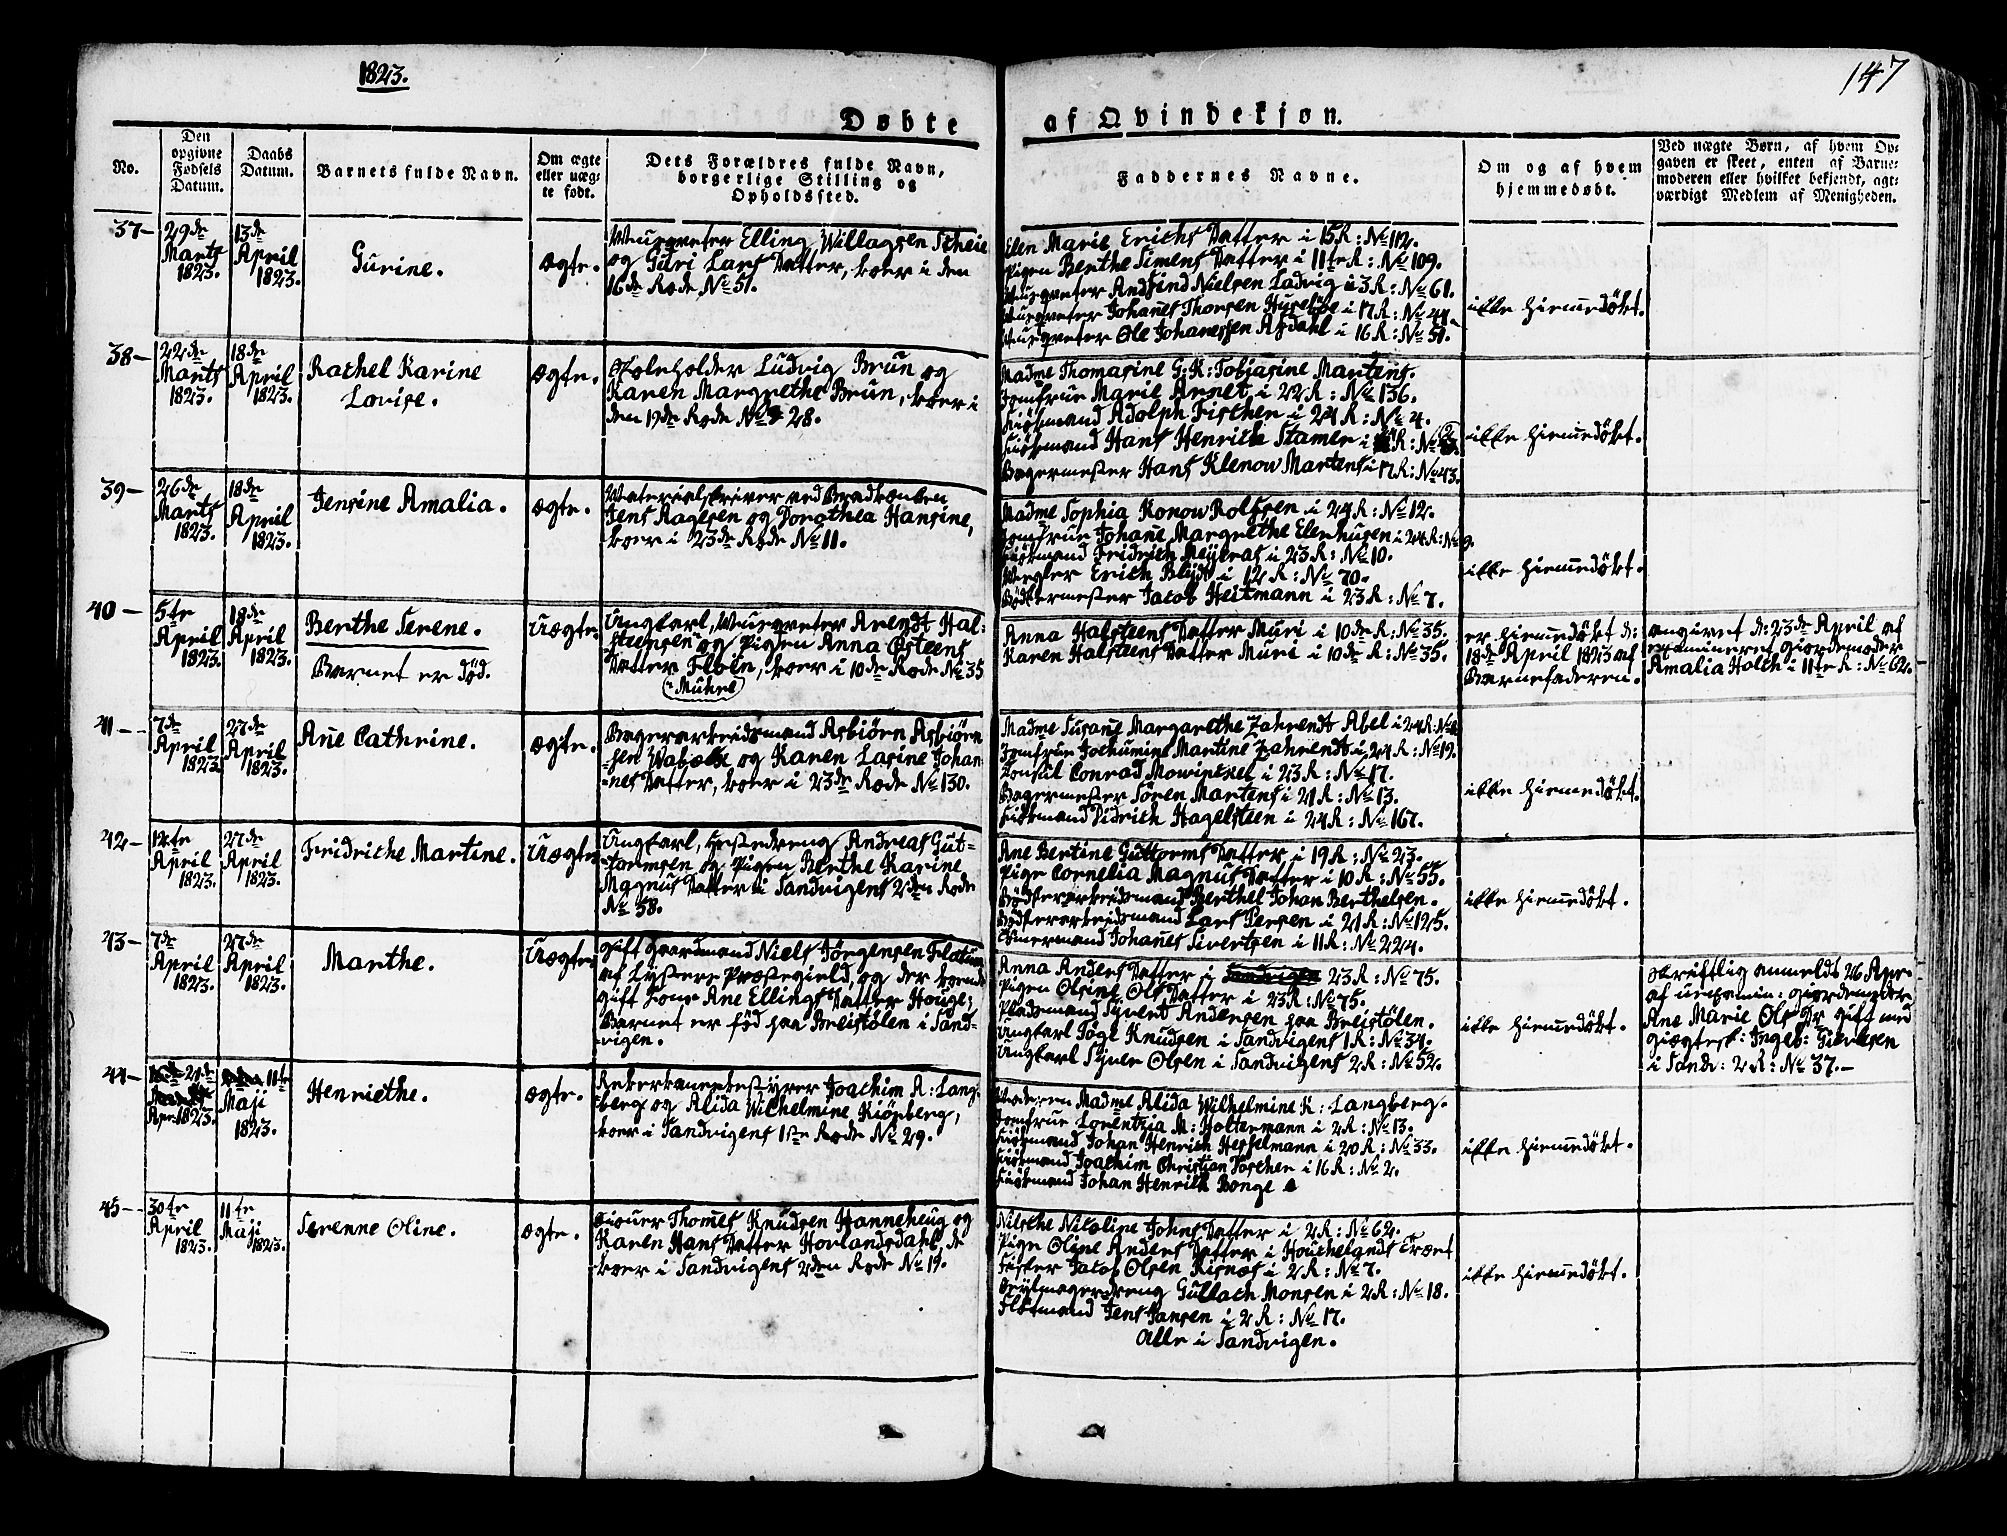 1823.
147
Døbte af Qvindekjøn.
No.
Den opgivne Fødsels Datum.
Daabs Datum.
Barnets fulde Navn.
Om ægte eller uægte født.
Dets Forældres fulde Navn, borgerlige Stilling og Opholdssted.
Faddernes Navne.
Om og af hvem hjemmedøbt.
Ved uægte Børn, af hvem Opgaven er skeet, enten af Barnemoderen eller hvilket bekjendt, agtværdigt Medlem af Menigheden.
37-
29de Marts 1823.
13de April 1823.
Gurine.
Ægte.
Elling Willagsen Scheie
og Guri Lars Datter, boer i den
16de Rode No 51.
Elen Marie Erichs Datter i 15 R: No 112.
Pigen Berthe Simens Datter i 11te R: No 109.
Muurmester Andfind Nielsen Ladvig i 3 R: No 61.
Johañes Thorsen i 17 R: No 44
Ole Johanessen Aasdahl i 16 R: No 51.
ikke hiemedøbt.
38-
22de Marts 1823.
18de April 1823.
Rachel Karine
Lovise.
Ægte.
Skoleholder Ludvig Brun og
Karen Margrethe Brun, boer i
den 19de Rode No 28.
Madme Thomasine G: K: Tobiasine Martens.
Jomfrue Marie Arnet i 22 R: No 136.
Kiøbmand Adolph Fischer i 24 R: No 4.
Kiøbmand Hans Henrich Stamer i R: No
Bagermester Hans Klenow Martens i 17 R: No 43.
ikke hiemedøbt.
39-
26de Marts 1823.
18de April 1823.
Jensine Amalia.
Ægte.
Materialskriver ved Bradbænken
Jens Aagesen og Dorothea Hansine,
boer i 23de Rode No 11.
Madme Sophia Konow Rolfsen i 24 R: No 12.
Jomfrue Johañe Margrethe Elerhusen i 24 R: No 9.
Kiøbmand Fridrich Meÿer i 23 R: No 10.
Mægler Erich Blÿdt i 12 R: No 70.
Bødkermester Jacob Heitmann i 23 R: No 7.
ikke hiemedøbt.
40-
5te April 1823.
18de April 1823.
Berthe Serene.
Barnet er død.
Uægte
Ungkarl, Arendt Hal-
steensen og Pigen Anna Østeens
Datter Fløin, boer i 10de Rode No 35
Muhre
Anna Halsteens Datter Muri i 10de R: No 35.
Karen Halsteens Datter Muri i 10de R: No 35.
er hiemedøbt d:
18de April 1823 af
Barnefaderen.
angivet d: 23de April af
examineret Giordemoder
Amalia Holch i 11te R: No 62.
41-
7de April 1823.
27de April 1823.
Añe Cathrine.
Ægte.
Bagerarbeidsmand Asbiørn Asbiørn
sen og Karen Lasine Johan
nes Datter, boer i 23de Rode No 130.
Madme Susañe Margarethe Zahrendt Abel i 24 R: No
Jomfrue Jochumine Martine Zahrendt i 24 R: No 19.
Konsul Conrad Mowinckel i 23 R: No 17.
Bagermester Søren Martens i 21 R: No 13.
Kiøbmand Didrich Hagelsteen i 24 R: No 167.
ikke hiemedøbt.
42-
12te April 1823.
27de April 1823.
Fridriche Martine.
Uægte
Ungkarl, Hestedreng Andreas Gut-
tormsen og Pigen Berthe Karine
Magnus Datter i Sandvigens 2den Rode
No 58.
Ane Bertine Guttorms Datter i 19 R: No 23.
Pige Cornelia Magnus Datter i 10 R: No 55.
Bødkerarbeidsmand Berthel Johan Berthelsen.
Bødkerarbeidsmand Lars Persen i 21 R: No 125.
Johañes Sivertsen i 11 R: No 224.
ikke hiemedøbt.
43-
7de April 1823.
27de April 1823.
Marthe.
Uægte
gift Gaardmand Niels Jørgensen Flatum
af Lysters Præstegield, og der boende
gift Kone Ane Ellings Datter Houge;
Barnet er fød paa Breistølen i Sand-
vigen.
Anna Anders Datter i 23 R: No 75.
Pigen Olsine Ols Datter i 23 R: No 75.
Pladsmand Sjvert Andersen paa Breistølen.
Ungkarl Tøge Knudsen i Sandvigens 1 R: No 34.
Ungkarl Synes Olsen i Sandvigens 2 R: No 52.
ikke hiemedøbt.
Skriftlig anmeldt 26 Apr.
af uexamin: Giordemoder
Ane Marie Ols Dr gift med
Ingeb:
i Sandv: 2 R: No 37.-
44-
21de April 1823.
11te Maji 1823.
Henriethe.
Ægte.
Joachim A: Lang-
berg og Alida Wilhelmine Kiøpberg,
boer i Sandvigens 1ste Rode No 29.
Moderen Madme Alida Wilhelmine K: Langberg.
Jomfrue Lorentzia M: Holtermann i 2 R: No 13.
Kiøbmand Johan Henrich Hesselmann i 20 R: No 33.
Kiøbmand Joachim Christian i 16 R: No 2.
Kiøbmand Johan Henrich Bonge
ikke hiemedøbt.
45-
30te April 1823.
11te Maji 1823.
Serenne Oline.
Ægte.
Thomes Knudsen Hanneheug og
Karen Hans Datter Hovlandsdahl, de
boer i Sandvigens 2den Rode No 19.
Nilsche Nicoline Johns Datter i 2 R: No 62.
Pige Oline Anders Datter i
Fisker Jacob Olsen Risnæs i 2 R: No 7.
Gullach Monsen i 2 R: No 18.
Jens Jansen i 2 R: No 17.
Alle i Sandvigen.
ikke hiemedøbt.